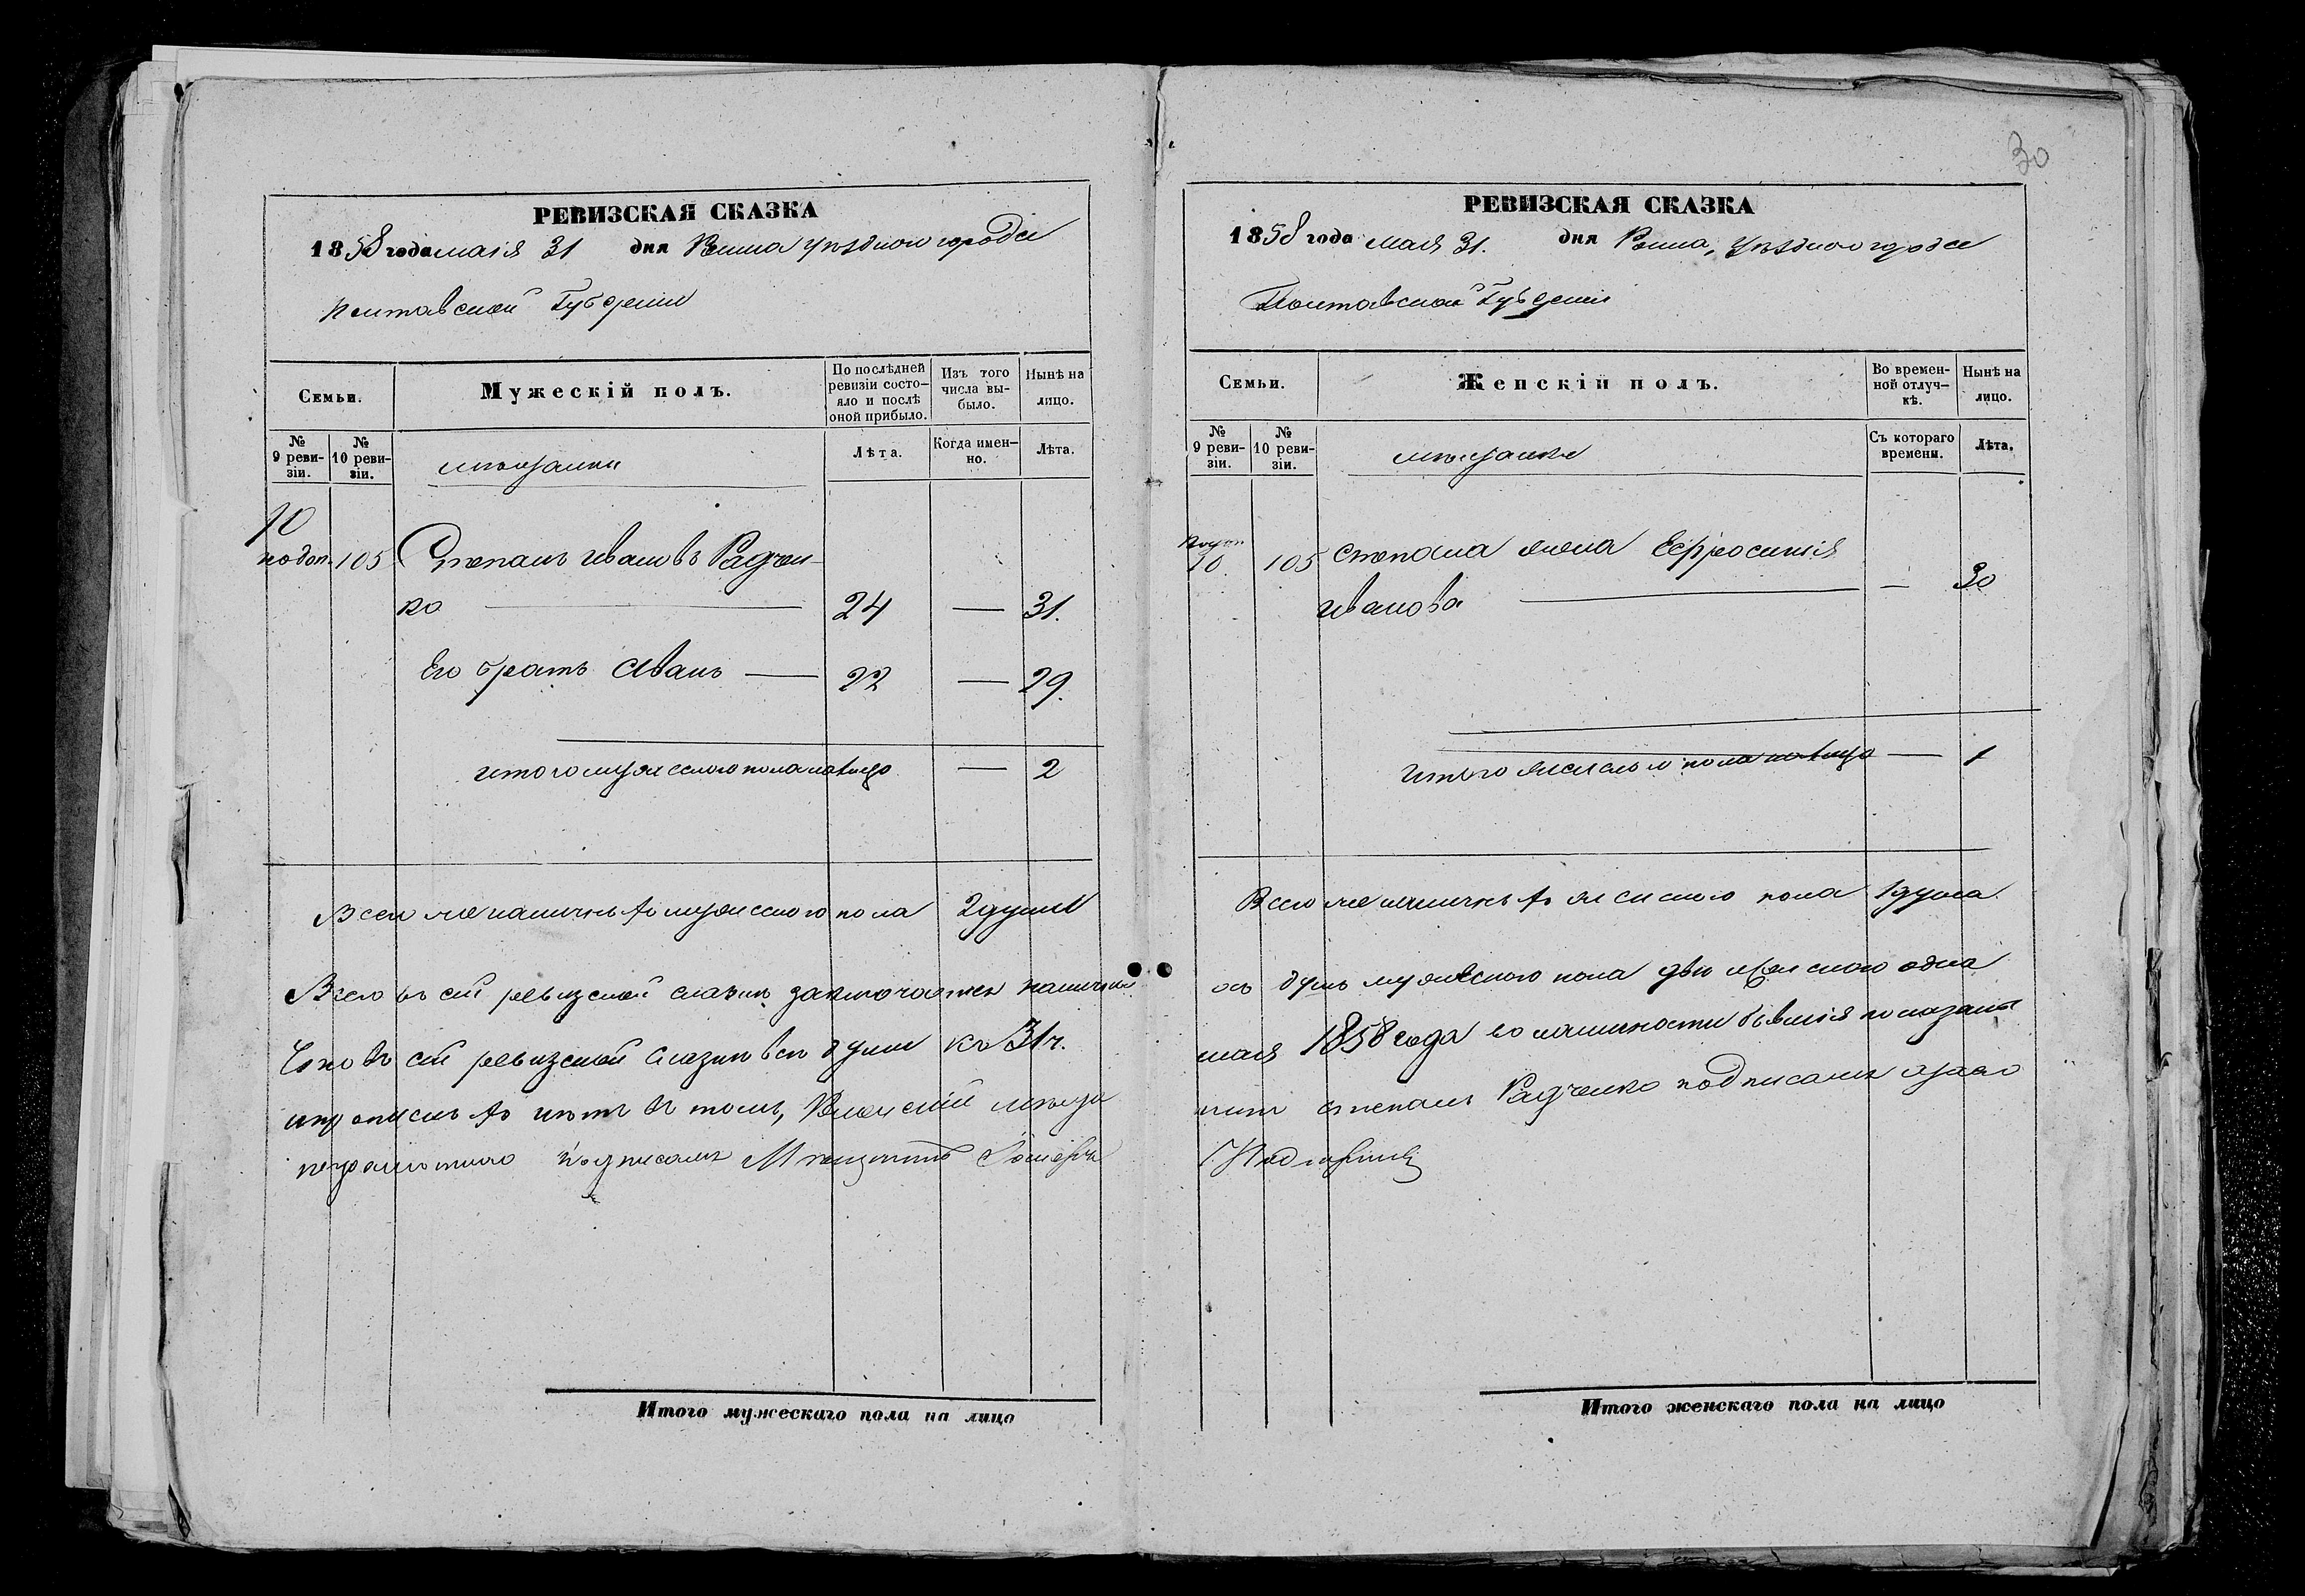 30
РЕВИЗСКАЯ СКАЗКА
1858 года маія 31 дня Ромна уѣздного города
Полтавской Губерніи
Семьи.
Мужескій полъ.
По послѣдней ревизіи состо-
яло и послѣ оной прибыло.
Изъ того числа вы-
было.
Нынѣ на лицо.
№ 9 реви-
зіи.
№ 10 реви-
зіи.
мѣщанинъ
Лѣта.
Когда имен-
но.
Лѣта.
10
подоп. 105 Степанъ Ивановъ Радчен-
ко — 24 — 31.
Его братъ Иванъ — 22 — 29.
итого мужеского пола налицо — 2
Всего же наличныхъ мужеского пола 2 души
Всего въ сей ревизской сказкѣ заключается наличныхъ
Что въ сей ревизской сказкѣ всѣ души къ 31 ч.
и прописныхъ нѣтъ въ томъ, Роменскій мѣща
неграмотного подписалъ Мѣщанинъ
Итого мужескаго пола на лицо
РЕВИЗСКАЯ СКАЗКА
1858 года мая 31. дня Ромна, уѣздного города
Полтавской Губерніи
Семьи.
Женскій полъ.
Во времен-
ной отлуч-
кѣ.
Нынѣ на лицо.
№ 9 реви-
зіи.
№ 10 реви-
зіи.
мѣщанка
Съ котораго времени.
Лѣта.
подоп
10 105 Степана жена Ефросинія
Иванова — — 30
Итого женского пола налицо — 1
Всего же наличныхъ женского пола 1 душа.
душъ мужеского пола двѣ и женского одна
мая 1858 года въ наличности бывшія показаны
нинъ Степанъ Радченко подписалъ а за него
Итого женскаго пола на лицо